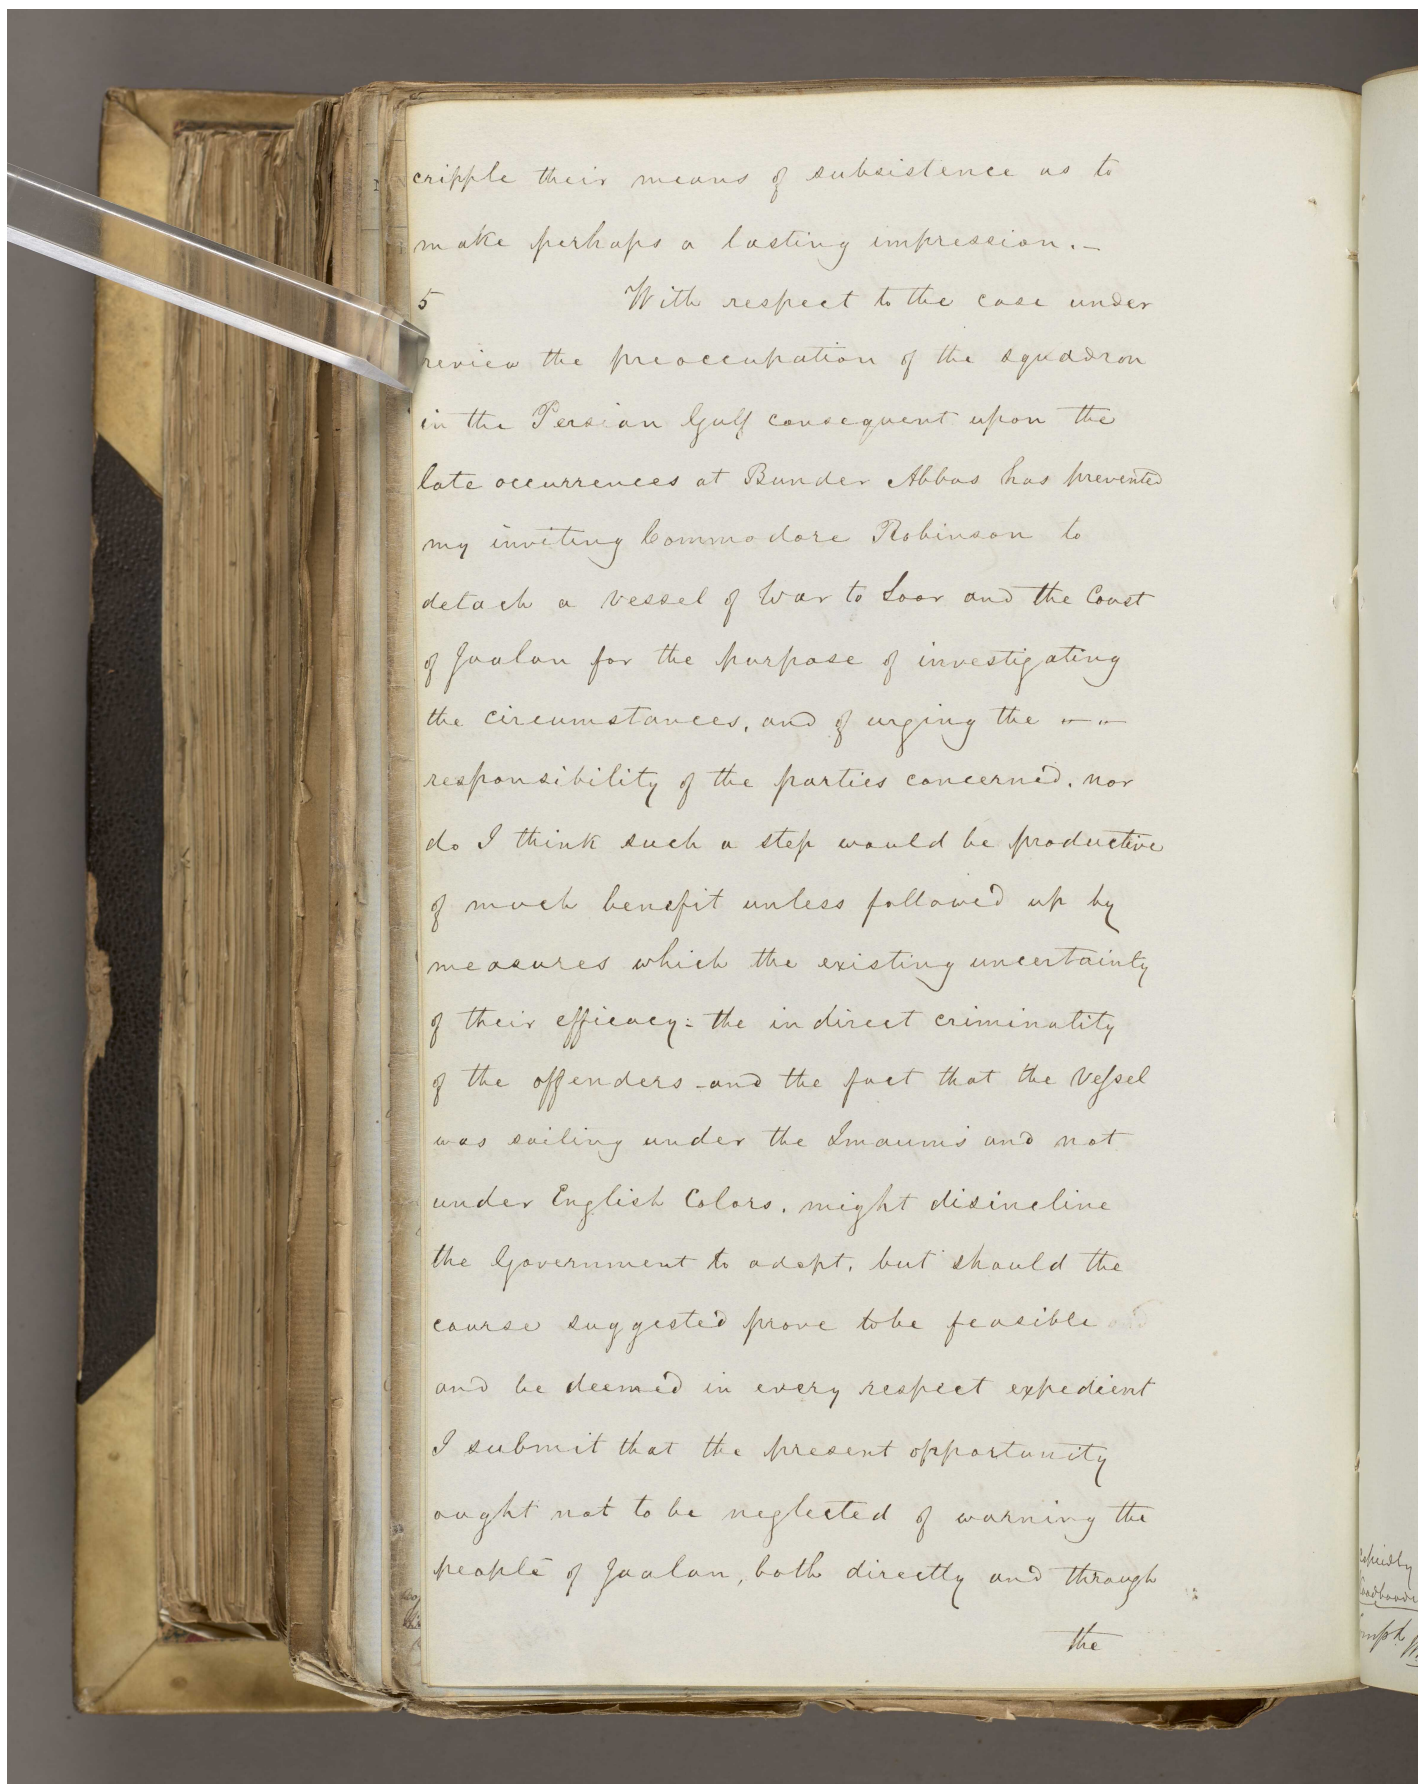 cripple their means of subsistence as to
make perhaps a lasting impression. -
5 With respect to the case under
review the preoccupation of the squadron
in the Persian Gulf consequent upon the
late occurrences at Bunder Abbas has prevented
my inviting Commodore Robinson to
detach a vessel of War to Soor and the Coast
of Jaalan for the purpose of investigating
the circumstances, and of urging the - -
responsibility of the parties concerned. nor
do I think such a step would be productive
of much benefit unless followed up by
measures which the existing uncertainty
of their efficacy: the indirect criminality
of the offenders - and the fact that the Vessel
was sailing under the Imaum's and not
under English Colors. might disincline
the Government to adopt. but should the
course suggested prove to be feasible
and be deemed in every respect expedient
I submit that the present opportunity
ought not to be neglected of warning the
people of Jaalan, both directly and through
the